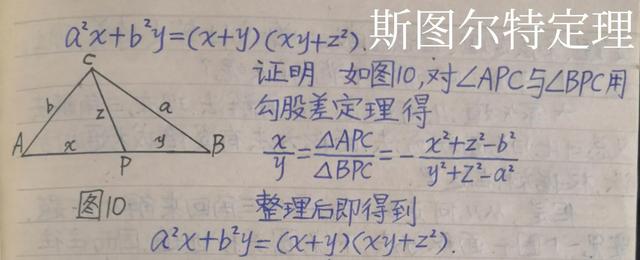 a²x+b²y=(x+y)(xy+z²).
斯图尔特定理
证明 如图10,对∠APC与∠BPC用
勾股差定理得
x/y=△APC/△BPC=-(x²+z²-b²)/(y²+z²-a²)
C
b
z
a
A
x
P
y
B
图10
整理后即得到
a²x+b²y=(x+y)(xy+z²).